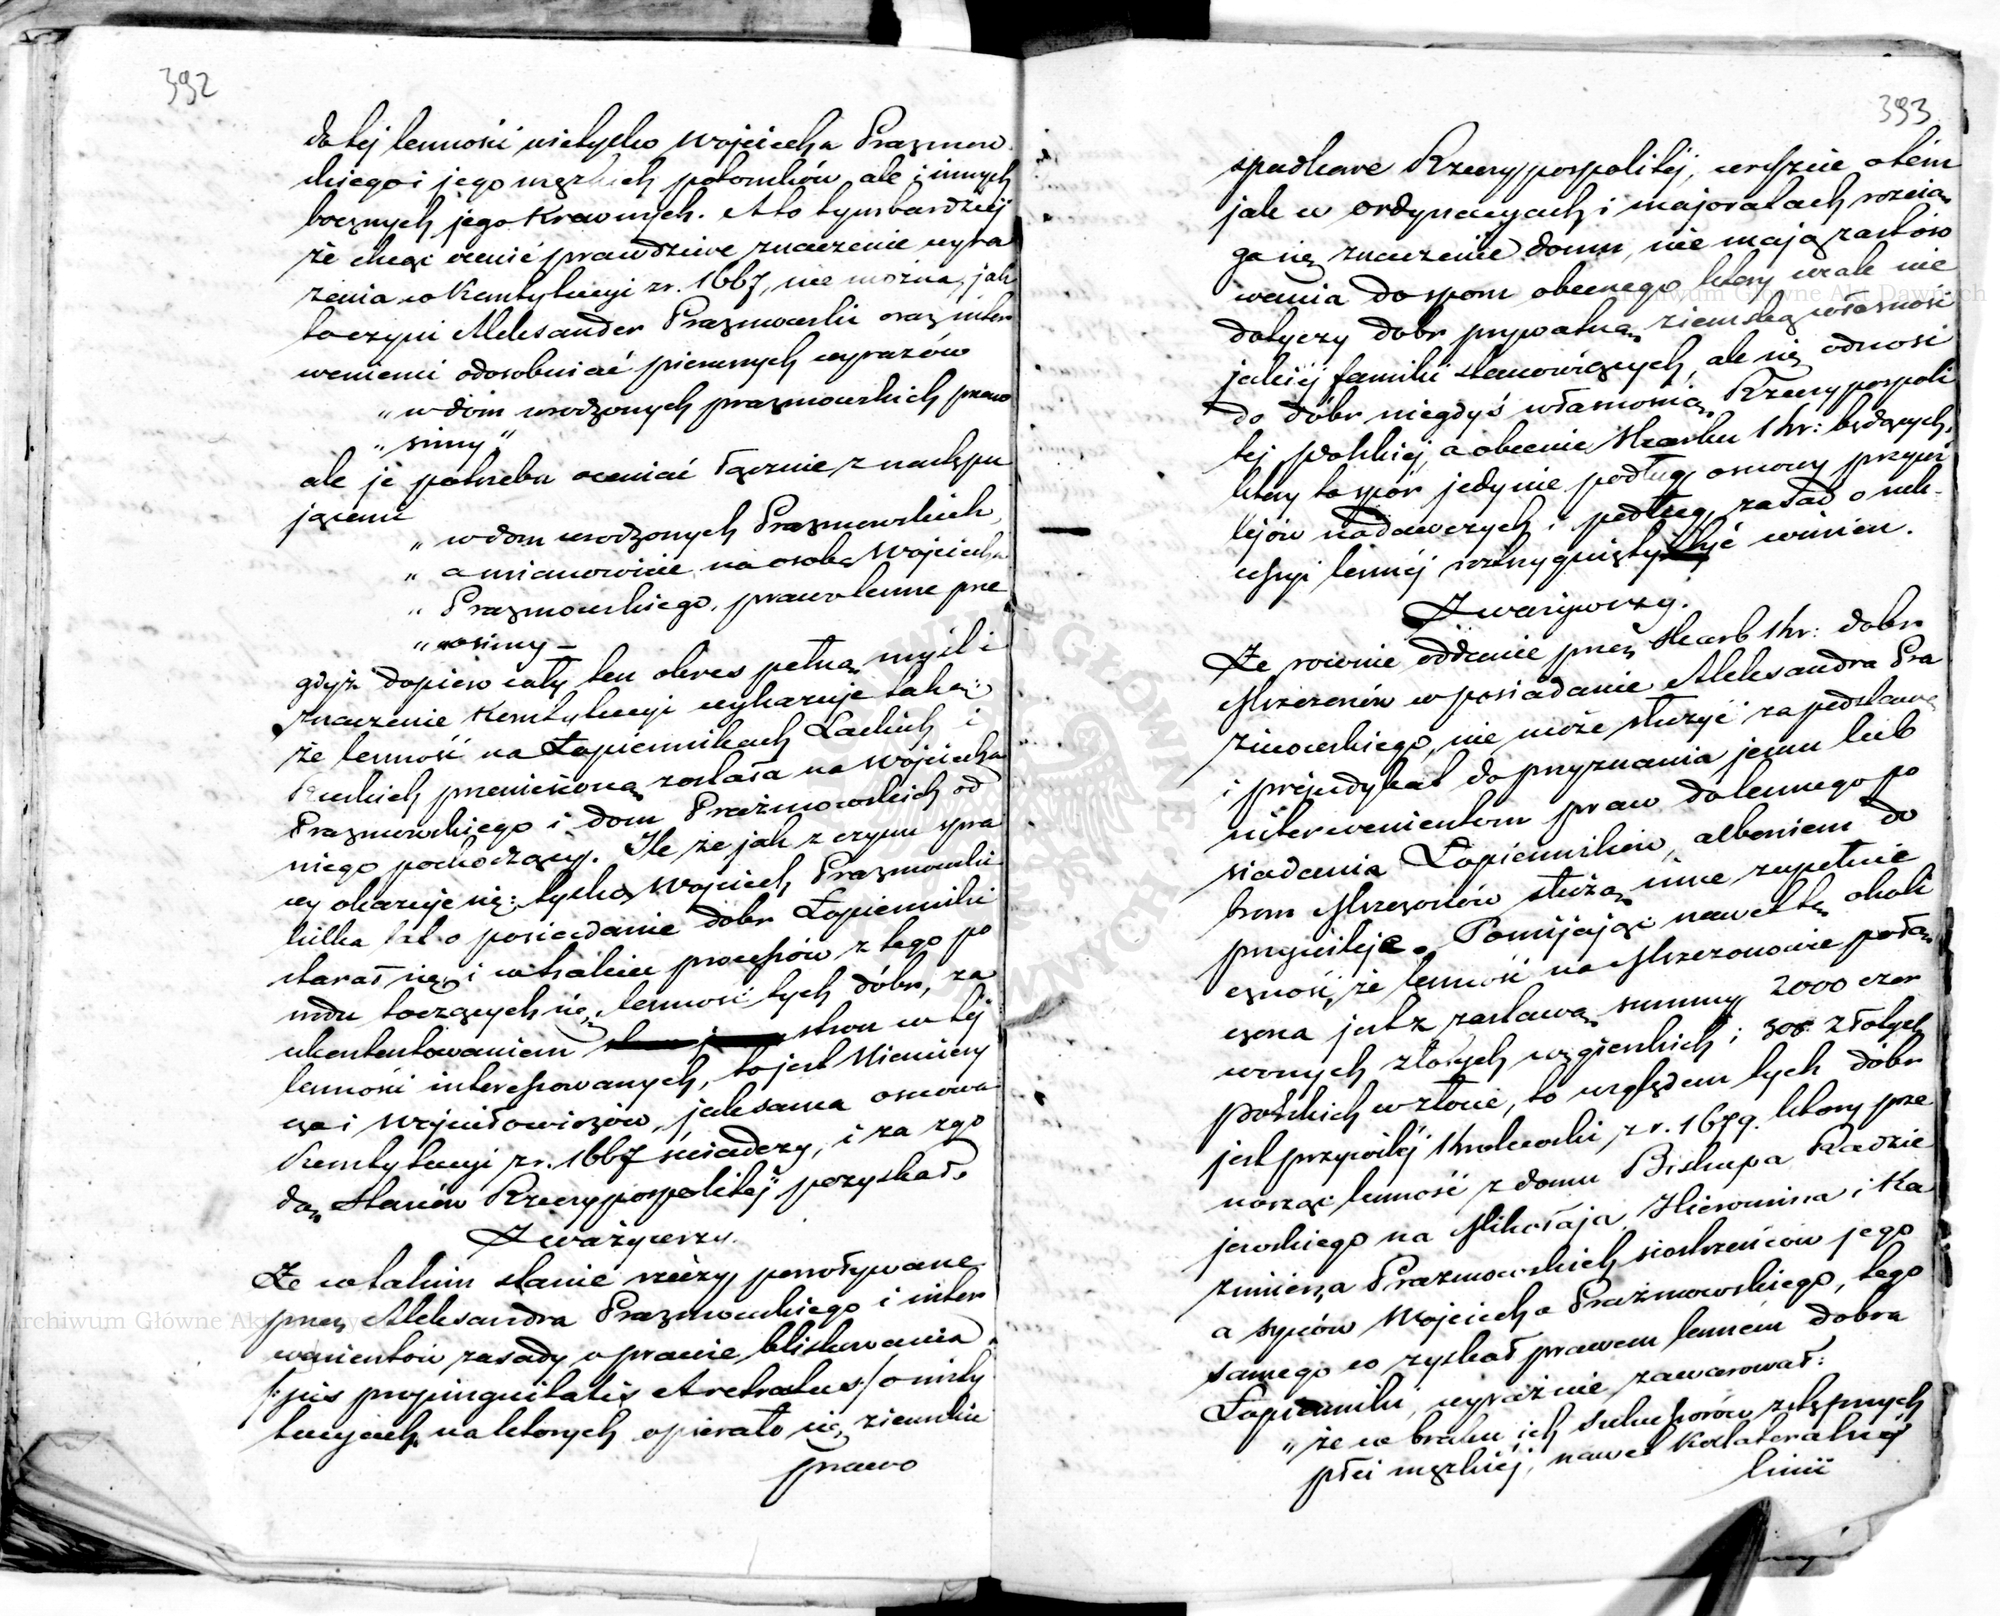 392
do tej lenności nietylko Wojciecha Prazmow
skiego i jego męzkich potomków ale i innych
bocznych jego Krewnych. A to tymbardziej
że chcąc ocenić prawdziwe znaczenie wyra
zenia w Konstytucyi zr. 1667, nie można, jak
to czyni Aleksander Prazmowski oraz inter
wenienci odosobniać pierwszych wyrazów
„w dom urodzonych prazmowskich prano
„simy"
ale je potrzeba oceniać łącznie z nastepu
jącemi
„w dom urodzonych Prazmowskich
„a mianowicie na osobę Wojciecha
„Prazmowskiego, prawo lenne prze
„nosimy –
gdyż dopiero cały ten okres pełną myśl i
znaczenie Konstytucyi wykazuje taką:
że lenność na Łopiennikach Lackich i
Ruskich przeniesioną została na Wojciecha
Prazmowskiego i dom Prażmowskich od
niego pochodzący. Ile że jak z czynu spra
wy okazuje się: tylko Wojciech Prazmowski
kilka lat o posiadanie dobr Łopienniki
starał się i w trakcie processów z tego po
wodu toczących się, lenność tych dóbr, za
ukontentowaniem stron w tej
lenności interessowanych, to jest Niemiery
cza i Wojniłowiczów, jak sama osnowa
Konstytucyi z r. 1667 świadczy, i za zgo
dą Stanów Rzeczypospolitéj pozyskał.
Zważywszy.
Że w takim stanie rzéczy, powoływane
przez Aleksandra Prazmowskiego i inter
wenientów zasady o prawie blizkowania
/: jus propinquitatis et retractus / o insty
tucyach na ktorych opierało się ziemskie
prawo
393
spadkowe Rzeczypospolitéj, wreszcie o tém
jak w ordynacyach i majoratach rozcią
ga się znaczenie domu, nie mają zastoso
wania do sporu obecnego który wcale nie
dotyczy dobr prywatną ziemską własność
jakiéj familii stanowiących, ale się odnosi
do dóbr niegdyś własnością Rzeczypospoli
tej polskiéj a obecnie Skarbu Kr: będących,
który to spór jedynie podług osnowy przywi
lejów nadawczych i podług zasad o suk-
cessyi lennéj rozstrzygnięty być winien.
Zważywszy.
Że rownie oddanie przez Skarb Kr: dobr
Mrzezonów w posiadanie Aleksandra Pra
zmowskiego, nie może służyć za podstawę
i prejudykat do przyznania jemu lub
interwenientom praw do lennego po
siadania Łopienników, albowiem do
brom Mrzezonów służą inne zupełnie
przywileje. Pomijając nawet tę okoli
czność, że lenność na Mrzezonowie połą
czona jest z zastawą summy 2000 czer
wonych złotych węgierskich i 300 złotych
polskich w złocie, to względem tych dóbr
jest przywiléj Krolewski z r. 1679. ktory prze
nosząc lenność z domu Biskupa Radzie
jewskiego na Mikołaja, Hieronima i Ka
zimierza Prazmowskich siostrzeńców jego
a synów Wojciecha Prażmowskiego, tego
samego co zyskał prawem lennem dobra
Łopienniki, wyraźnie zawarował:
„że w braku ich sukcessorów zstępnych
płci męzkiéj, nawet Kollateralnéj
linii